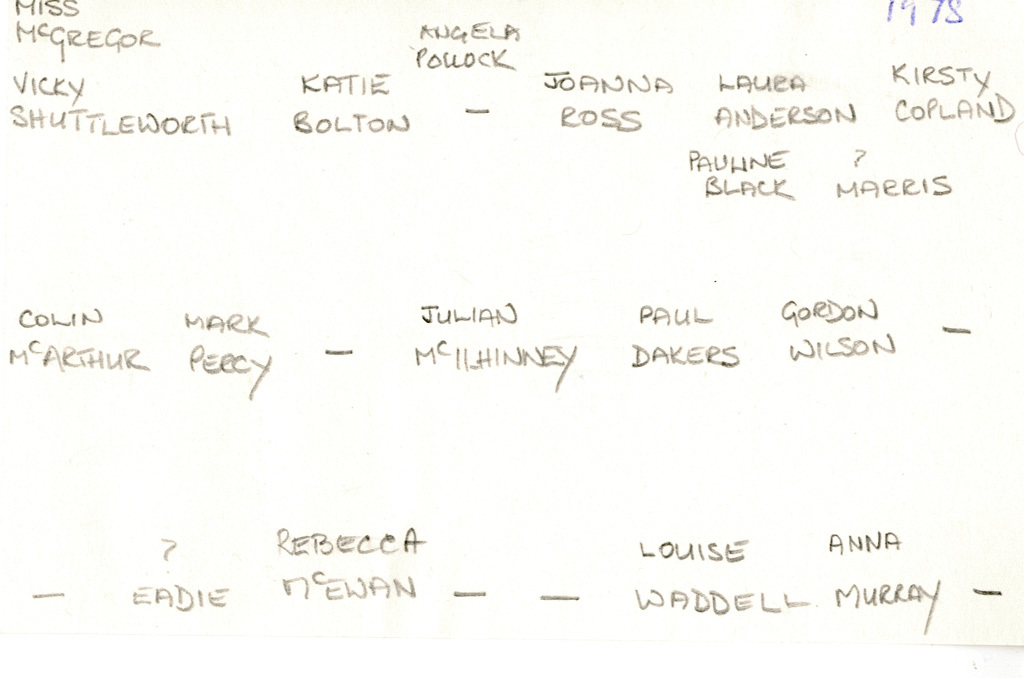 MISS 1978
McGREGOR ANGELA
POLLOCK
VICKY KATIE JOANNA LAURA KIRSTY
SHUTTLEWORTH BOLTON — ROSS ANDERSON COPLAND
PAULINE ?
BLACK MARRIS
COLIN MARK JULIAN PAUL GORDON
McARTHUR PERCY — McILHINNEY DAKERS WILSON —
? REBECCA LOUISE ANNA
— EADIE McEWAN — — WADDELL MURRAY —